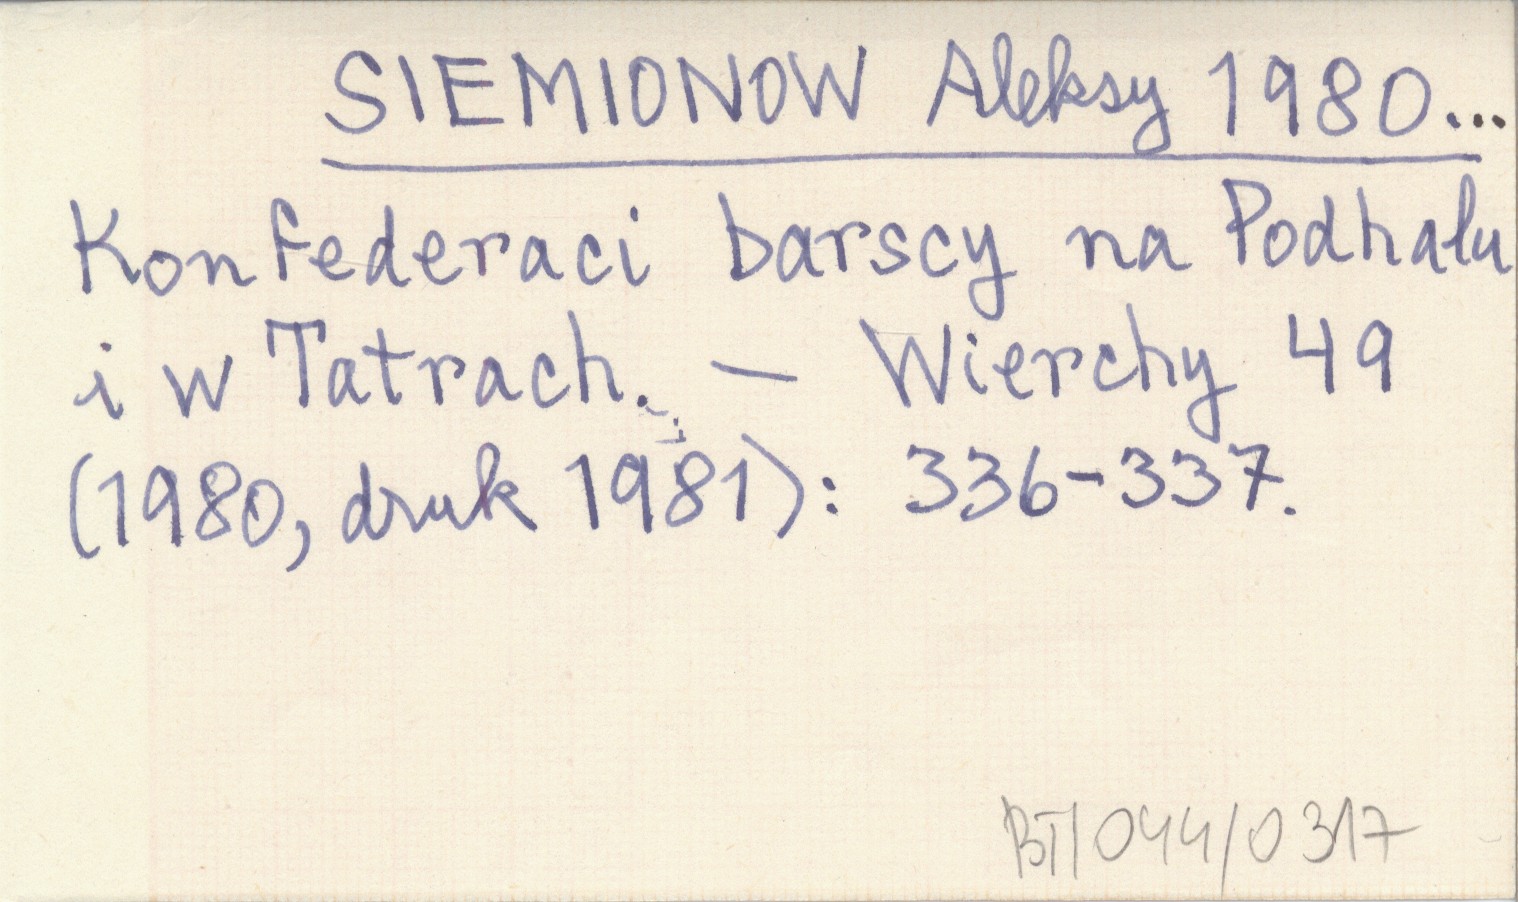 SIEMIONOW Aleksy 1980...
Konfederaci barscy na Podhalu
i w Tatrach. — Wierchy 49
(1980, druk 1981): 336-337.
BT/044/0317